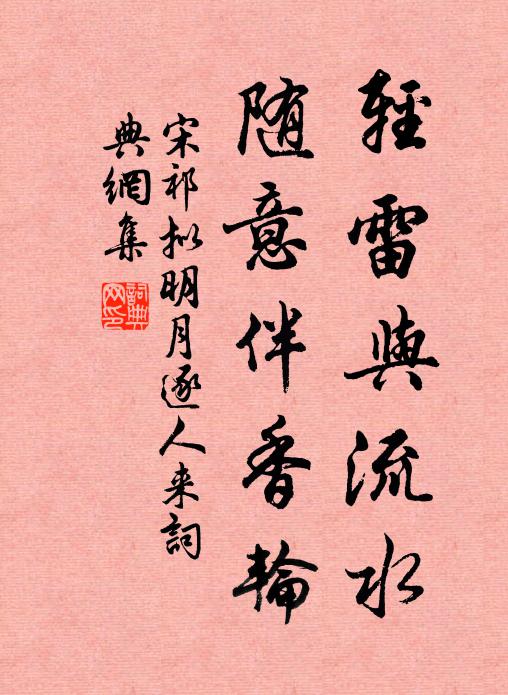 輕雷與流水
随意伴香輪
宋祁拟明月逐人来詞
典網集
詞典
网印